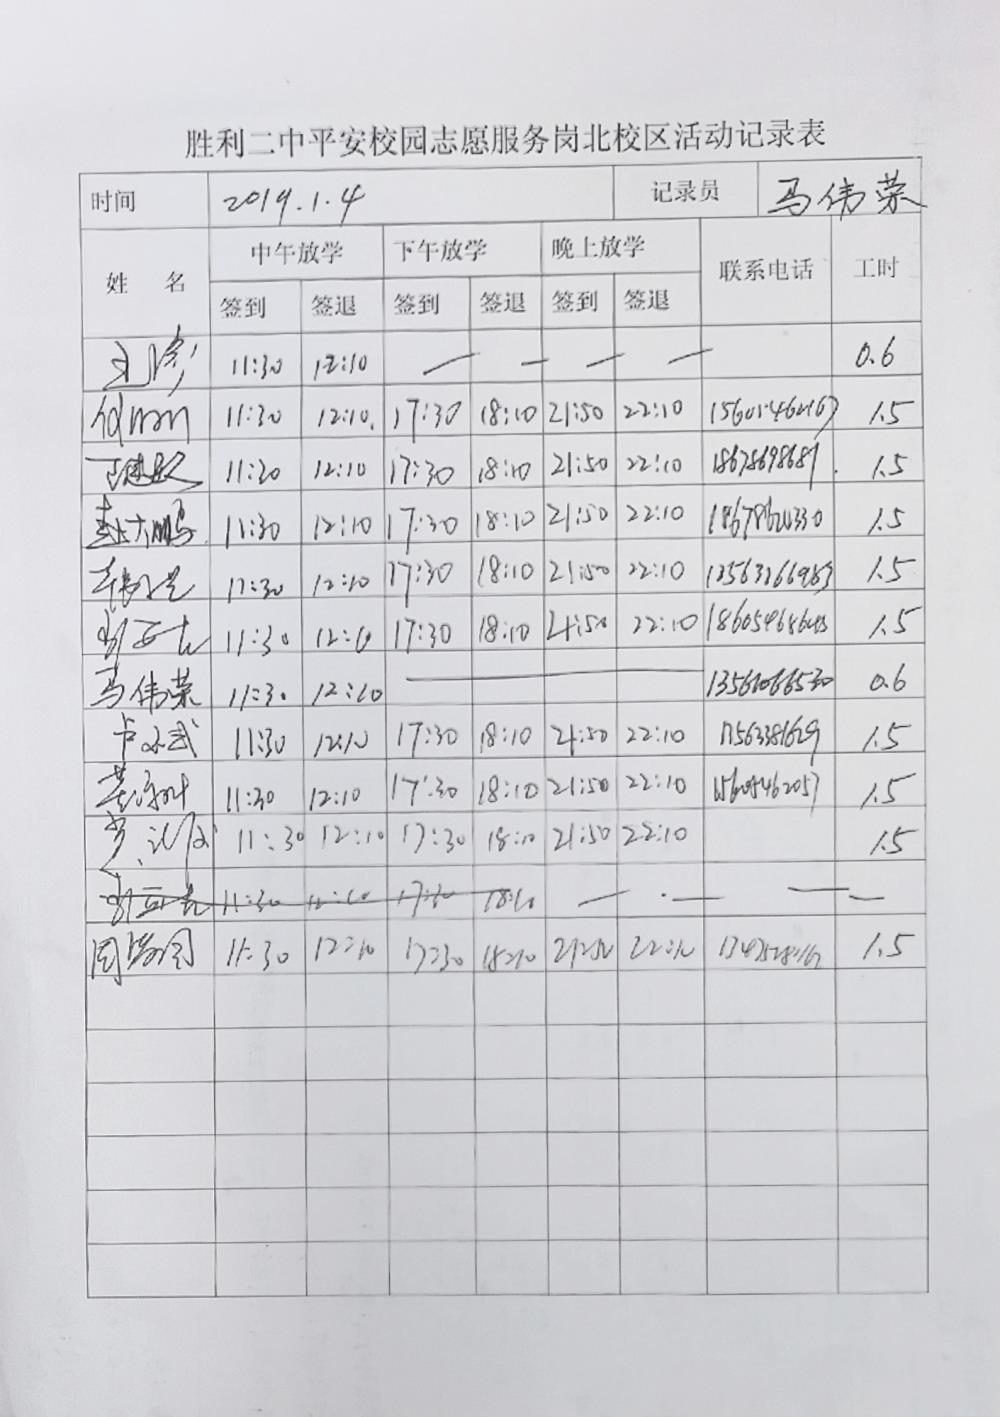 胜利二中平安校园志愿服务岗北校区活动记录表
时间 2019.1.4 记录员 马伟荣
姓 名 中午放学 下午放学 晚上放学 联系电话 工时
签到 签退 签到 签退 签到 签退
11:30 12:10 — — — — 0.6
11:30 12:10. 17:30 18:10 21:50 22:10 1.5
11:30 12:10 17:30 18:10 21:50 22:10 18678698681. 1.5
11:30 12:10 17:30 18:10 21:50 22:10 1.5
11:30 12:10 17:30 18:10 21:50 22:10 1.5
11:30 12:10 17:30 18:10 21:50 22:10 1.5
马伟荣 11:30 12:10 —— 13561066530 0.6
11:30 12:10 17:30 18:10 21:50 22:10 1.5
11:30 12:10 17:30 18:10 21:50 22:10 15605462057 1.5
11:30 12:10 17:30 18:10 21:50 22:10 1.5
11:30 12:10 17:30 18:10 — · — — —
11:30 12:10 17:30 18:10 21:50 22:10 1.5